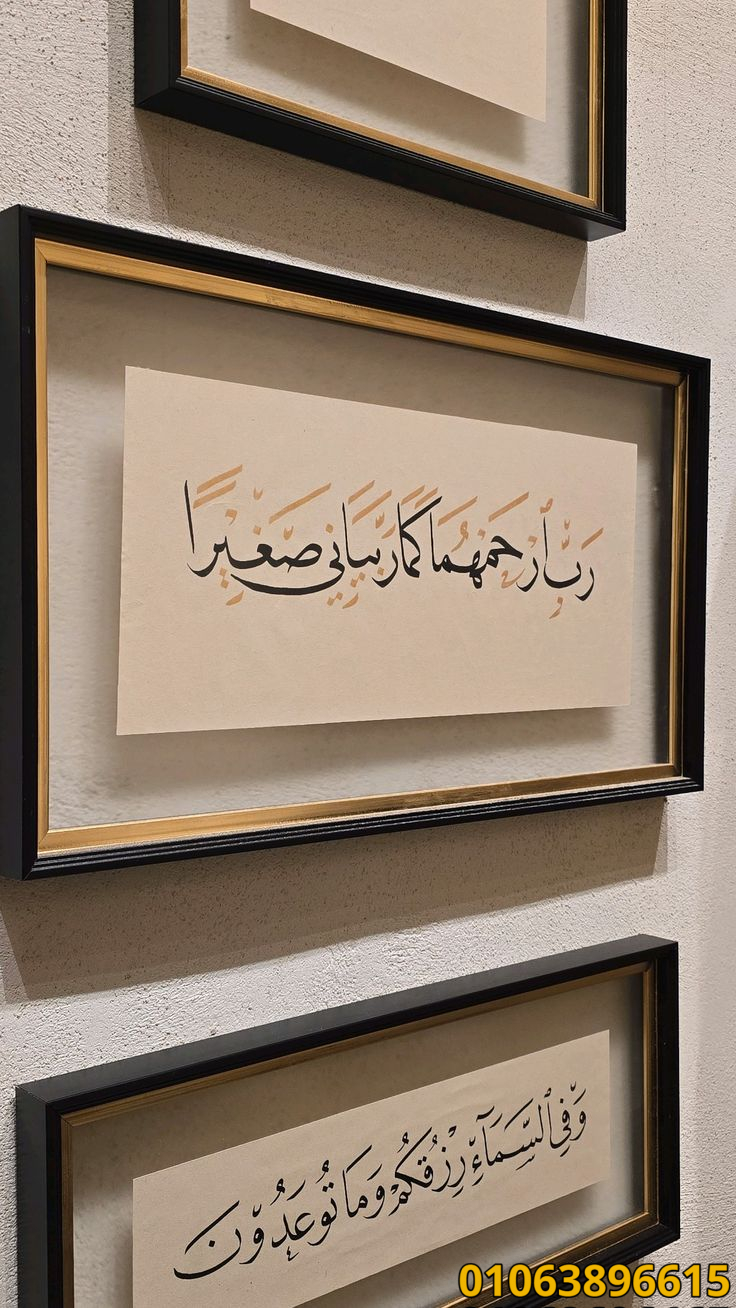 رَبِّ ٱرْحَمْهُمَا كَمَا رَبَّيَانِي صَغِيرًا
وَفِي ٱلسَّمَآءِ رِزْقُكُمْ وَمَا تُوعَدُونَ
01063896615